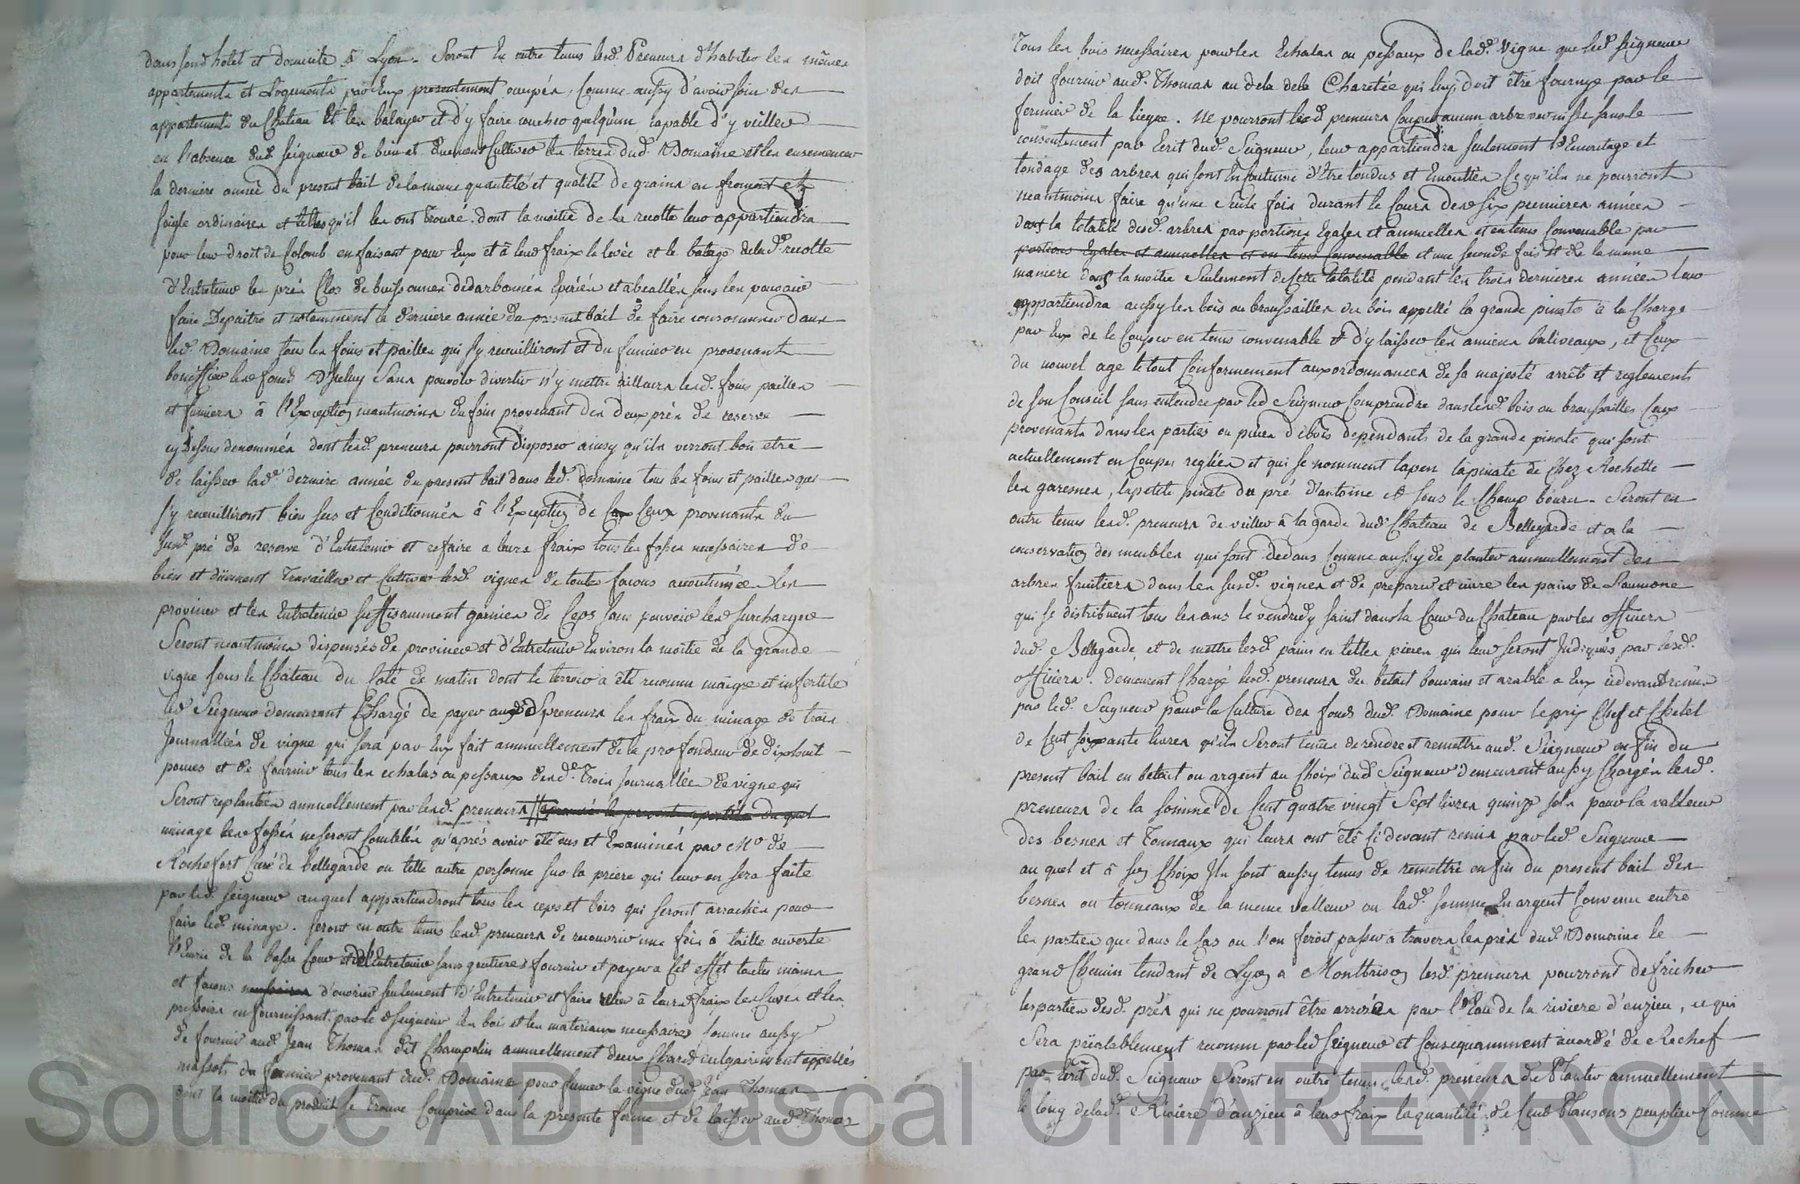 dans sond. hotel et domicile à Lyon. Seront en outre tenus lesd. Preneurs d'habiter les mêmes
appartements et Logements par Eux presentement occupés, Comme aussy d'avoir soin des
appartements du Chateau Et les balayer et d'y faire coucher quelqu'un capable d'y veiller
en l'absence dud. seigneur de bien et duement Cultiver les terres dud. Domaine et les ensemencer
la derniere année du present bail de la meme quantité et qualité de grains en froment et
seigle ordinaires et telles qu'il les ont trouvé. dont la moitié de la recolte leur appartiendra
pour leur droit de Colomb en faisant pour Eux et à leur fraix la levée et le batage de lad. recolte
d'Entretenir les prés Clos de buissonnés sans les pouvoir
faire Depaitre et notamment la derniere année du present bail de faire consommer dans
led. Domaine tous les foins et pailles qui s'y recueilliront et du fumier en provenant
bonifier les fonds D'iceluy Sans pouvoir divertir n'y mettre ailleurs lesd. foins pailles
et fumiers à l'Exception neantmoins du foin provenant des deux prés de reserve
cy dessus denommés dont lesd. preneurs pourront disposer ainsy qu'ils verront bon etre
de laisser lade. derniere année du present bail dans led. domaine tous les foins et pailles qui
s'y recueilliront bien secs et Conditionnés à l'Exception de Ceux provenants du
susd. pré de reserve d'Entretenir et refaire a leurs fraix tous les fosses necessaires de
bien et düement Travailler et Cultiver lesd. vignes de toutes façons accoutumées les
provincer et les Entretenir suffisamment garnies de Ceps sans pouvoir les surcharger
Seront neantmoins dispensés de provincer et d'Entretenir Environ la moitié de la grande
vigne sous le Chateau du Coté de matin dont le terroir a été reconnu maigre et infertile
led. Seigneur demeurant Chargé de payer auxd. preneurs les fraix du minage de trois
Journallées de vigne qui sera par Eux fait annuellement de la profondeur de dixhuit
pouces et de fournir tous les echalas ou pessaux desd. Trois journallées de vigne qui
Seront replantées annuellement par lesd. preneurs
minage les fossés ne seront Comblés qu'aprés avoir été vus et Examinés par Mr. de
Rochefort Curé de bellegarde ou telle autre personne sur la priere qui leur en sera faite
par led. seigneur auquel appartiendront tous les ceps et bois qui seront arrachés pour
faire led. minage. Seront en outre tenus lesd. preneurs de recouvrir une fois à taille ouverte
l'Ecurie de la basse Cour et de l'Entretenir sans goutieres fournir et payer a Cet effet toutes mains
et façons d'ouvrier seulement d'Entretenir et faire à leurs fraix les cuves et les
pressoirs en fournissant par le dt. seigneur les bois et les materiaux necessaires Comme aussy
de fournir aud. Jean Thomas dit Champelin annuellement deux Chars vulgairement appellés
massots de fumier provenant dud. Domaine pour fumer la vigne dud. Jean Thomas
dont la moitié du produit se trouve Comprise dans la presente ferme et de laisser aud. Thomas
Tous les bois necessaires pour les Echalas ou pessaux de lad. vigne que led. seigneur
doit fournir aud. Thomas au dela de la Charetée qui luy doit être fournye par le
fermier de la liegue. Ne pourront lesd. preneurs Couper aucun arbre vert ni sec sans le
consentement par Ecrit dud. Seigneur, leur appartiendra seulement l'Emondage et
tondage des arbres qui sont En Coutume d'être tondus et Emondés Ce qu'ils ne pourront
neantmoins faire qu'une Seule fois durant le Cours des six premieres années
dans la totalité desd. arbres par portions Egales et annuelles et en tems Convenable par
portions Egales et annuelles et en tems Convenable et une seconde fois et de la meme
maniere dans la moitié Seulement de Cette totalité pendant les trois dernieres années leur
appartiendra aussy les bois ou broussailles du bois appellé la grande pinate à la Charge
par Eux de le Couper en tems convenable et d'y laisser les anciens baliveaux, et Ceux
du nouvel age le tout Conformement aux ordonnances de sa majesté arrêts et reglements
de son Conseil sans entendre par led. Seigneur Comprendre dans lesd. bois ou broussailles Ceux
provenants dans les parties ou pieces d'ebois dependants de la grande pinate qui sont
actuellement en Coupes reglées et qui se nomment la pinate de Chez Rochette
les garennes, la petite pinate du pré d'antoine et sous le Seront en
outre tenus lesd. preneurs de veiller à la garde dud. Chateau de Bellegarde et a la
conservation des meubles qui sont dedans Comme aussy de planter annuellement des
arbres fruitiers dans les susd. vignes et de preparer et cuire les pains de L'aumone
qui se distribuent tous les ans le vendredy saint dans la Cour du Chateau par les officiers
dud. Bellegarde, et de mettre lesd. pains en telles pieces qui leur seront Indiqués par lesd.
officiers. demeurent Chargé lesd. preneurs du betail bouvains et arable a Eux cidevant remis
par led. Seigneur pour la Culture des fonds dud. Domaine pour le prix Chef et Chetel
de Cent soixante livres qu'ils Seront tenus de rendre et remettre aud. Seigneur en fin du
present bail en betail ou argent au Choix dud. Seigneur demeurent aussy Chargés lesd.
preneurs de la somme de Cent quatre vingt Sept livres quinze sols pour la valleur
des bennes et Tonneaux qui leurs ont été Ci devant remis par led. Seigneur
au quel et à son Choix Ils sont aussy tenus de remettre en fin du present bail des
bennes ou tonneaux de la meme valleur ou lad. somme En argent Convenu entre
les parties que dans le Cas ou l'on feroit passer à travers les prés dud. Domaine le
grand Chemin tendant de Lyon a Montbrison lesd. preneurs pourront defricher
les parties desd. prés qui ne pourront être arrosés par l'Eau de la riviere d'anzieu, ce qui
Sera préalablement reconnu par led. seigneur et Consequamment accordé de Rechef
par Ecrit dud. Seigneur Seront en outre tenus lesd. preneurs de Planter annuellement
le long de lad. Riviere d'anzieu à leur fraix la quantité de Cent Plansons peuplier Comme
Source AD Pascal CHAREYRON